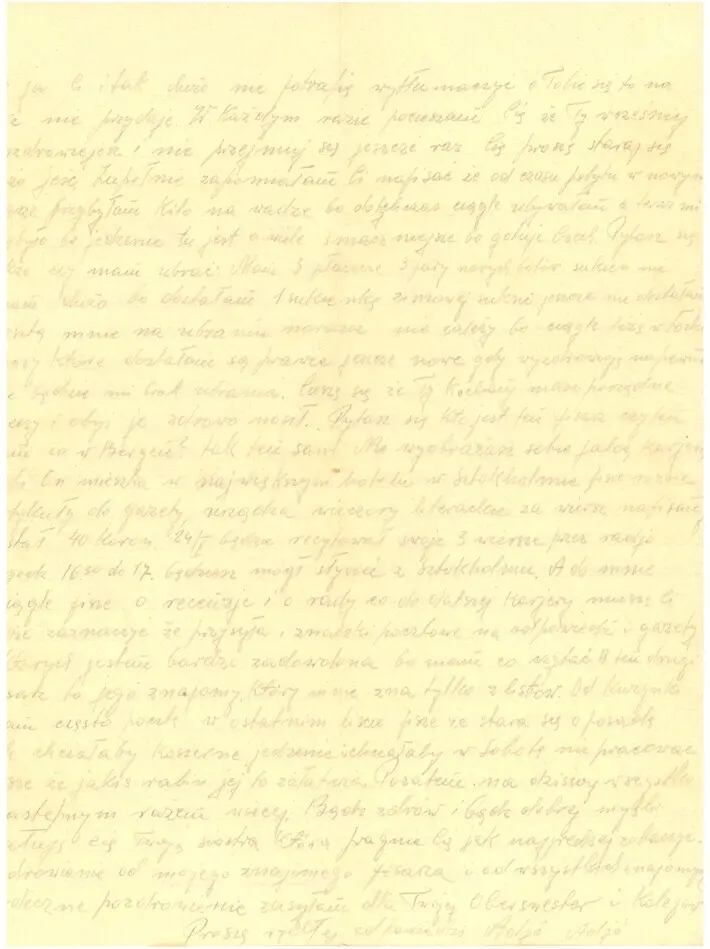 ja Ci i tak dużo nie potrafię wytłumaczyć o Tobie się to na
nie przydaje. W każdym razie pocieszam Cię że Ty wcześniej
wyzdrowiejesz i nie przejmuj się jeszcze raz Cię proszę staraj się
jeść. Zupełnie zapomniałam Ci napisać że od czasu pobytu w nowym
przybyłam kilo na wadze bo dotychczas ciągle ubywałam a teraz mi
bo jedzenie tu jest o wiele smaczniejsze bo gotuje Czech. Pytasz się
czy mam ubrać. Mam 3 płaszcze 3 pary nowych botów sukien nie
mam dużo bo dostałam 1 sukienkę zimowej sukni jeszcze nie dostałam
mnie na ubraniu narazie nie zależy bo ciągle leżę w łóżku
które dostałam są prawie jeszcze nowe gdy wyzdrowieję napewno
będzie mi brak ubrania. Cieszę się że Ty Kochany masz porządne
i obyś je zdrowo nosił. Pytasz się kto jest ten pisarz czy ten
co w Bergen? tak ten sam. Nie wyobrażasz sobie jaką karierę
On mieszka w największym hotelu w Sztokholmie pisze różne
artykuły do gazety, urządza wieczory literackie za wiersz napisany
dostał 40 koron. 24/I będzie recytował swoje 3 wiersze przez radjo
16 30 do 17. będziesz mógł słyszeć z Sztokholmu. A do mnie
ciągle pisze o recenzje i o rady co do dalszej karjery muszę Ci
zaznaczyć że przysyła i znaczki pocztowe na odpowiedź i gazety
których jestem bardzo zadowolona bo mam co czytać A ten drugi
pisarz to jego znajomy, który mnie zna tylko z listów. Od Kuzynki
mam często pocztę w ostatnim liście pisze że stara się o posadę
chciałaby koszerne jedzenie i chciałaby w Sobotę nie pracować
pisze że jakiś rabin jej to załatwia. Pozatem na dzisiaj wszystko
następnym razem więcej. Bądź zdrów i bądź dobrej myśli
Cię Twoja siostra która pragnie Cię jak najprędzej zobaczyć.
Pozdrowienia od mojego znajomego pisarza i od wszystkich znajomych
serdeczne pozdrowienie zasyłam dla Twojej Oberswester i Kolegów
Proszę Adzó Adzó